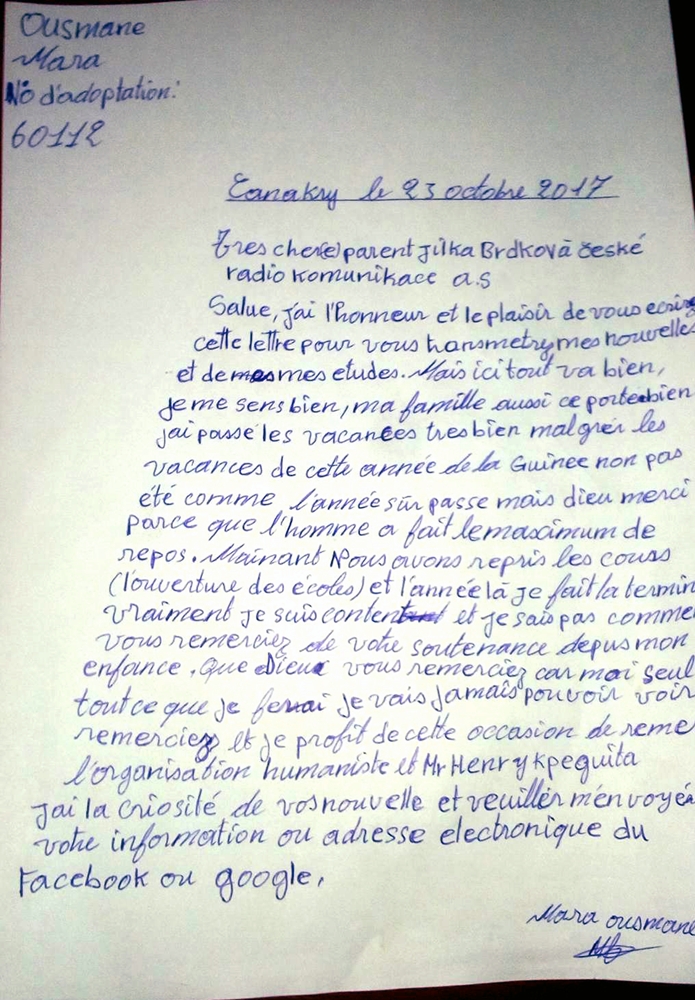 Ousmane
Mara
No d'adoptation:
60112
Canakry le 23 octobre 2017
Tres cher(e) parent Jilka Brdková české
radio Komunikace a.s
Salue, j'ai l'honneur et le plaisir de vous ecrire
cette lettre pour vous transmetry mes nouvelles
et de mes etudes. Mais ici tout va bien,
je me sens bien, ma famille aussi ce porte bien
j'ai passé les vacances tres bien malgrér les
vacances de cette année de la Guinee non pas
été comme l'année sûr passe mais dieu merci
parce que l'homme a fait le maximum de
repos. Mainant Nous avons repris les cours
(l'ouverture des écoles) et l'année là je fait la termin
vraiment je suis content et je sais pas comme
vous remerciez de votre soutenance depus mon
enfance, que Dieu vous remerciez car moi seul
tout ce que je ferai je vais jamais pouvoir voir
remerciez et je profit de cette occasion de reme
l'organisation humaniste et Mr Henry Kpeguita
j'ai la criosité de vos nouvelle et veuiller m'envoyé
votre information ou adresse electronique du
Facebook ou google,
Mara ousmane